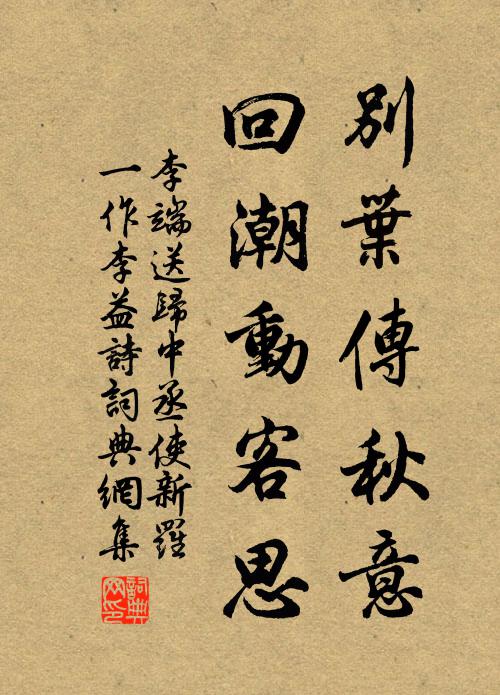 別葉傳秋意
回潮動客思
李端送歸中丞使新羅
一作李益詩詞典網集
詞典網印